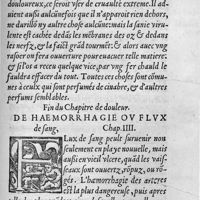 douloureux, ce seroit user de cruauté extreme. Il ad-
uient aussi aulcunefois que il n'apparoit rien dehors,
ne durillõ ny autre chose aulcune: mais la sanie virulente
est cachée dedãs les mẽbres cauz & dedans
les nerfz, & la faict grãd tourmẽt: & alors auec vng
rasoir on fera ouuerture pour euacuer telle matiere:
& si l'os a receu quelque vice, par vng fer chauld le
fauldra effacer du tout. Toutes ces choses sont cõmu-
nes à ceulx qui sont perfumés de cinabre, & d'autres
perfumes semblables.
Fin du Chapitre de douleur.
DE HAEMORRHAGIE OV FLVX
de sang, Chap. IIII.
FLux de sang peult suruenir non
seulement en playe nouuelle, mais
aussi en vieil vlcere, quãd les vais-
seaux sont ouuertz, rõpuz, ou rõ-
gés. L'hæmorrhagie des arteres
est la plus dangereuse, puis apres